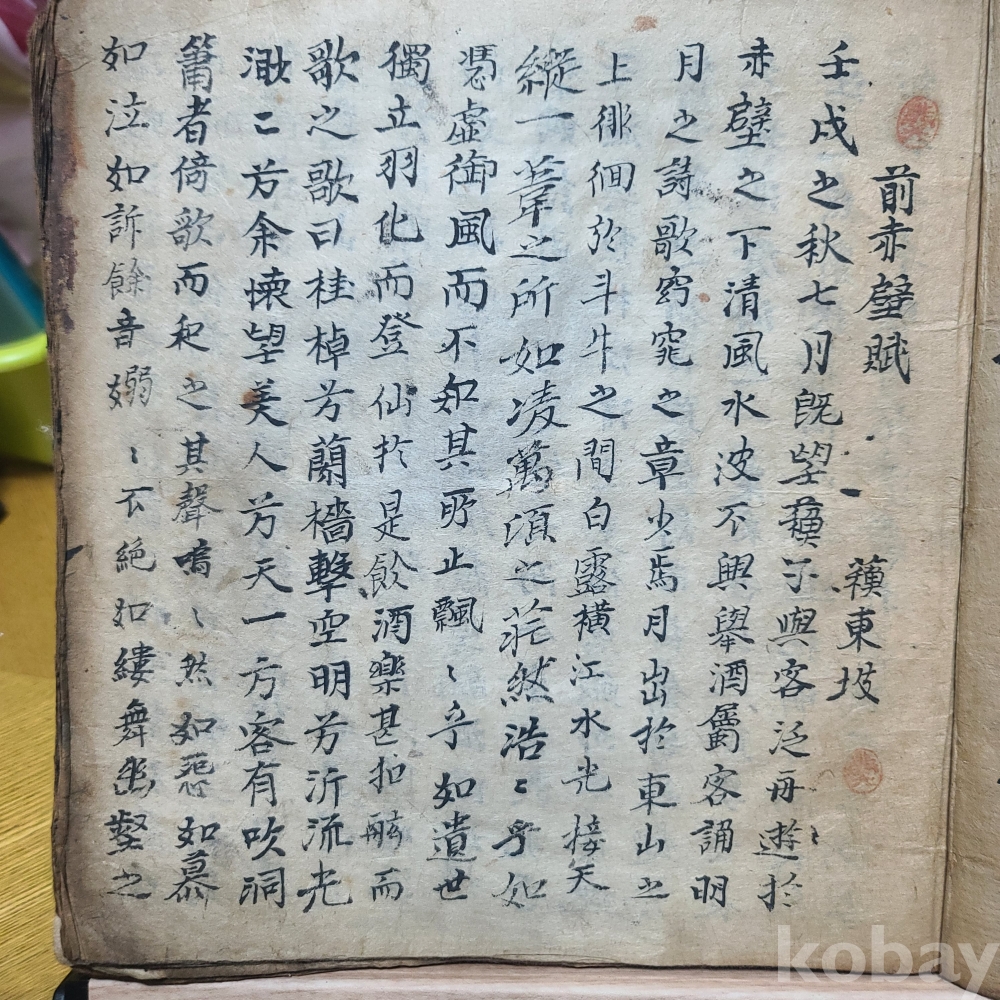 前赤壁賦
蘇東坡
壬戌之秋七月旣望蘇子與客泛舟遊於
赤壁之下淸風水波不興擧酒屬客誦明
月之詩歌窈窕之章少焉月出於東山之
上徘徊於斗牛之間白露橫江水光接天
縱一葦之所如凌萬頃之茫然浩〻乎如
憑虛御風而不知其所止飄〻乎如遺世
獨立羽化而登仙於是飮酒樂甚扣舷而
歌之歌曰桂棹兮蘭檣擊空明兮泝流光
渺〻兮余懷望美人兮天一方客有吹洞
簫者倚歌而和之其聲嗚〻然如怨如慕
如泣如訴餘音嫋〻不絶如縷舞幽壑之
kobay